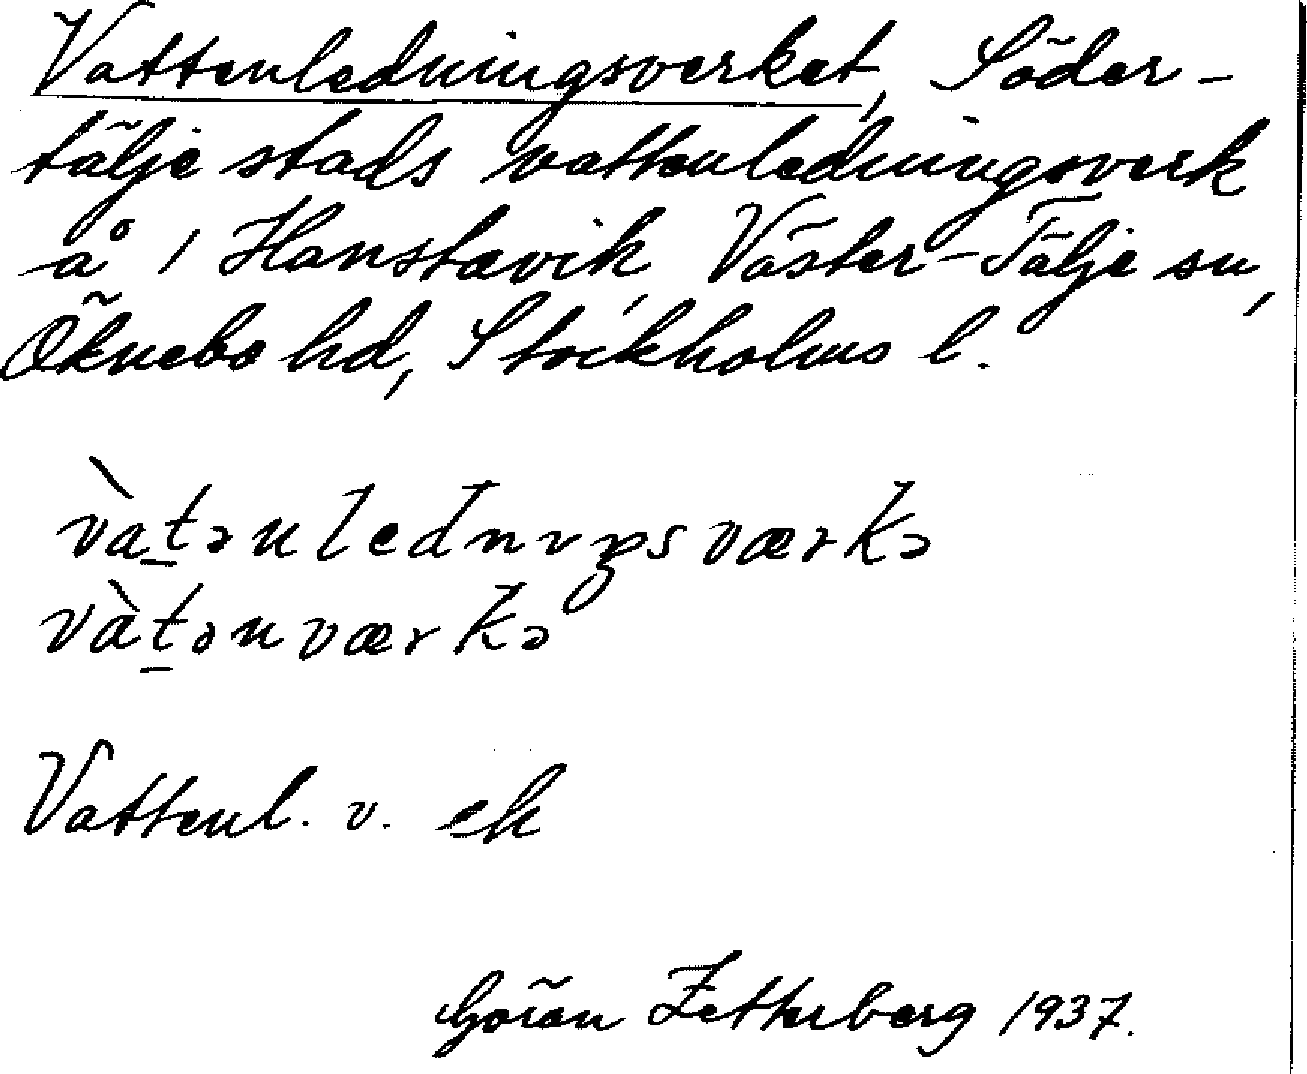 Vattenledningsverket, Söder-
tälje stads vattenledningsverk
å 1 Hanstavik, Väster-Tälje sn,
Öknebo hd, Stockholms l.
vàt̲ənlednıŋsværkə
vàt̲ənværkə
Vattenl. v. ek
Göran Zetterberg 1937.